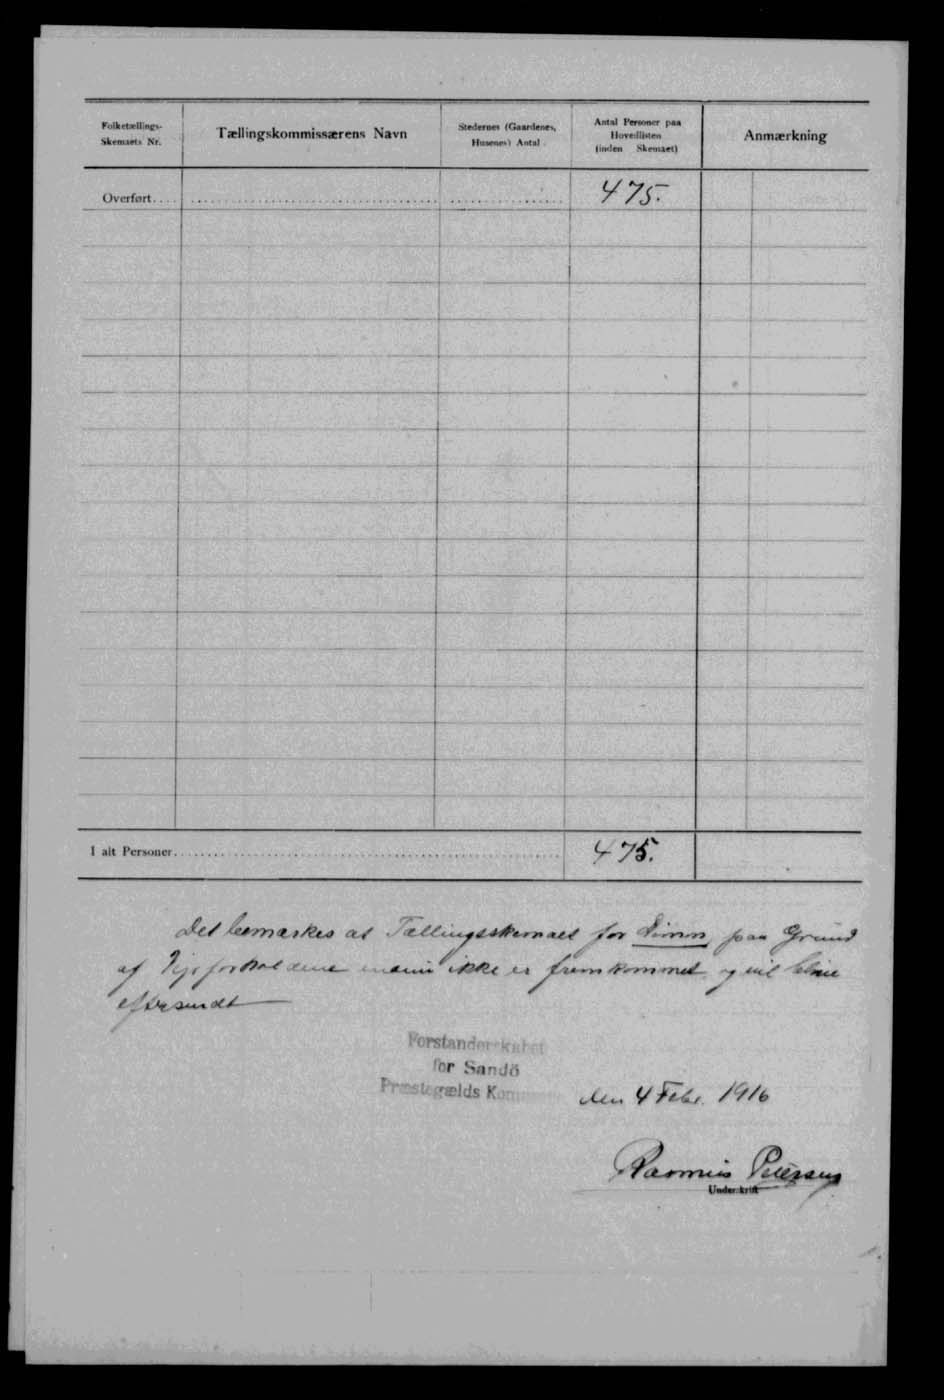 Folketællings-
Skemaets Nr.
Tællingskommissærens Navn
Stedernes (Gaardenes,
Husenes) Antal
Antal Personer paa
Hovedlisten
(inden Skemaet)
Anmærkning
Overført
475.
I alt Personer
475.
Det bemærkes at Tællingsskemaet for Dimon paa Grund
af Vejrforholdene endnu ikke er fremkommet og vil blive
eftersendt
Forstanderskabet
for Sandö
Præstegælds Kommune
den 4 Febr. 1916
Rasmus Petersen
Underskrift